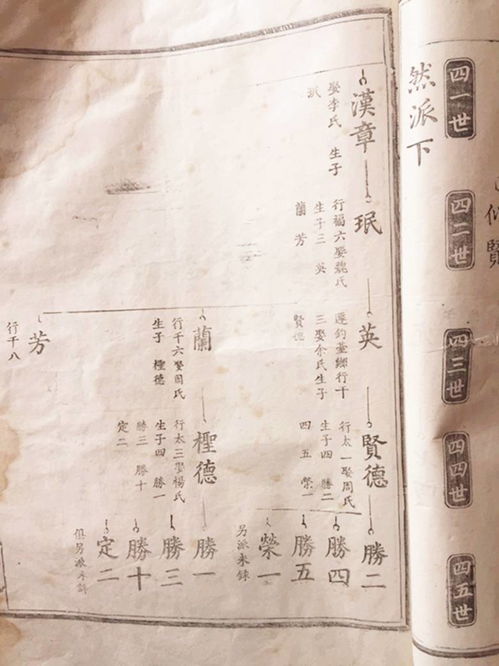 四一世
四二世
四三世
四四世
四五世
賢
然派下
漢章
娶李氏 生子
珉
珉
行福六娶魏氏
生子三 英
蘭 芳
英
遷釣臺鄉行十
三娶余氏生子
賢德
賢德
行太一娶周氏
生子四 勝二
四 五 榮一
勝二
勝四
勝五
榮一
另派未錄
蘭
行千六娶周氏
生子 檉德
檉德
行太三娶楊氏
生子四 勝一
勝三 勝十
定二
勝一
勝三
勝十
定二
俱另派未錄
芳
行千八